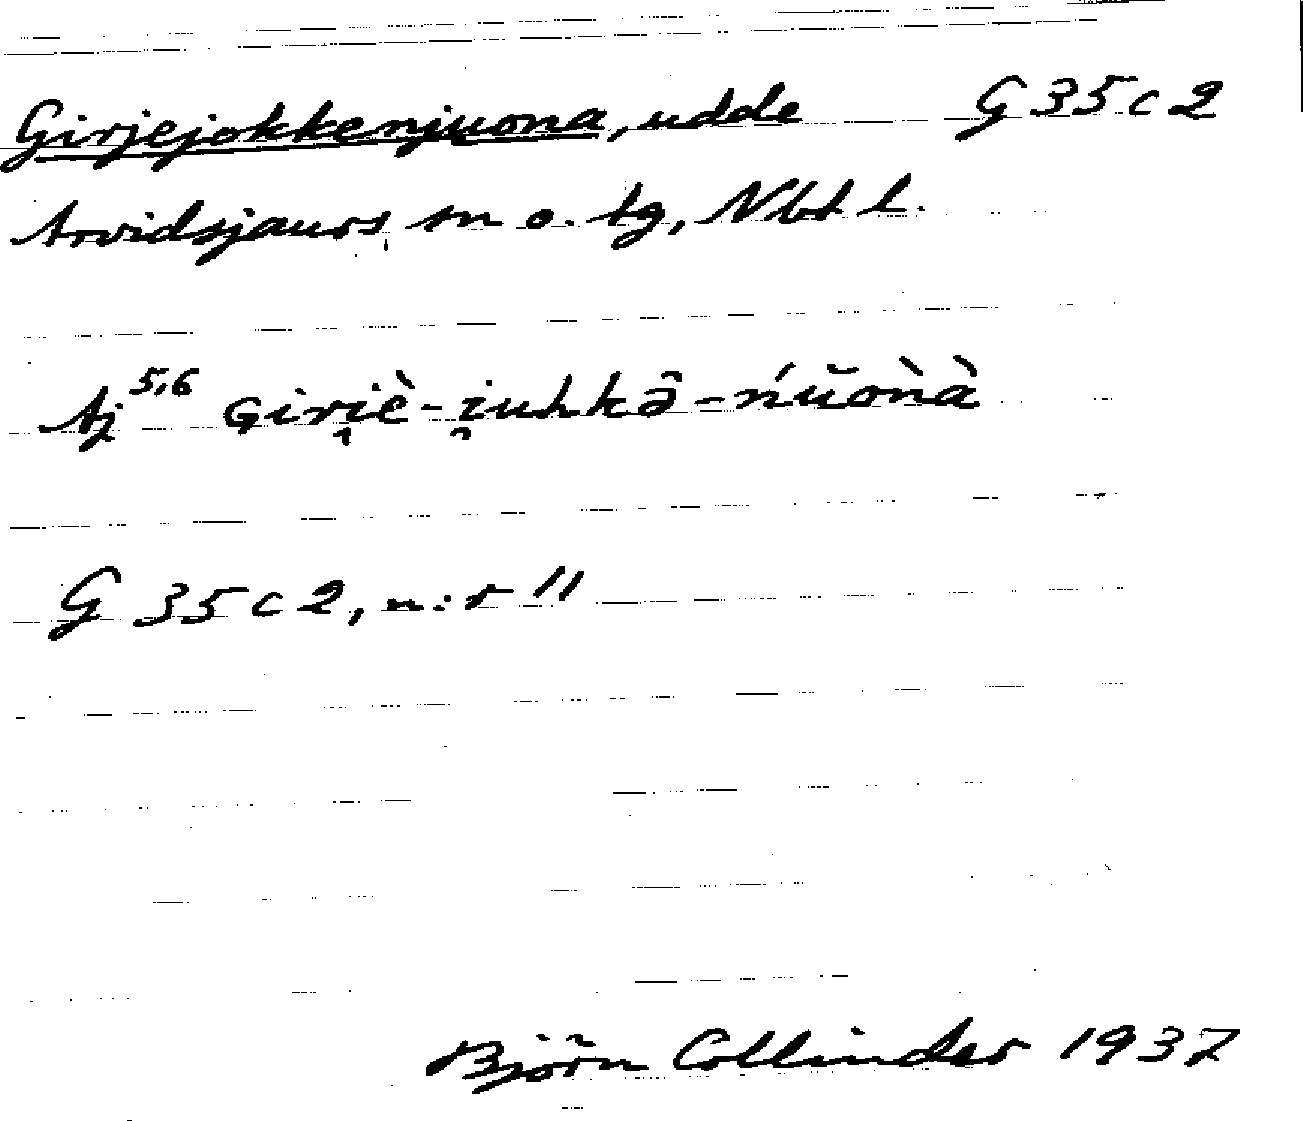 Girjejokkenjuona, udde G 35 c 2
Arvidsjaurs sn o. tg, Nbt l.
Aj 5,6 Giri̯è-i̯uhkə̑-ńŭònà
G 35 c 2, n:r 11
Björn Collinder 1937